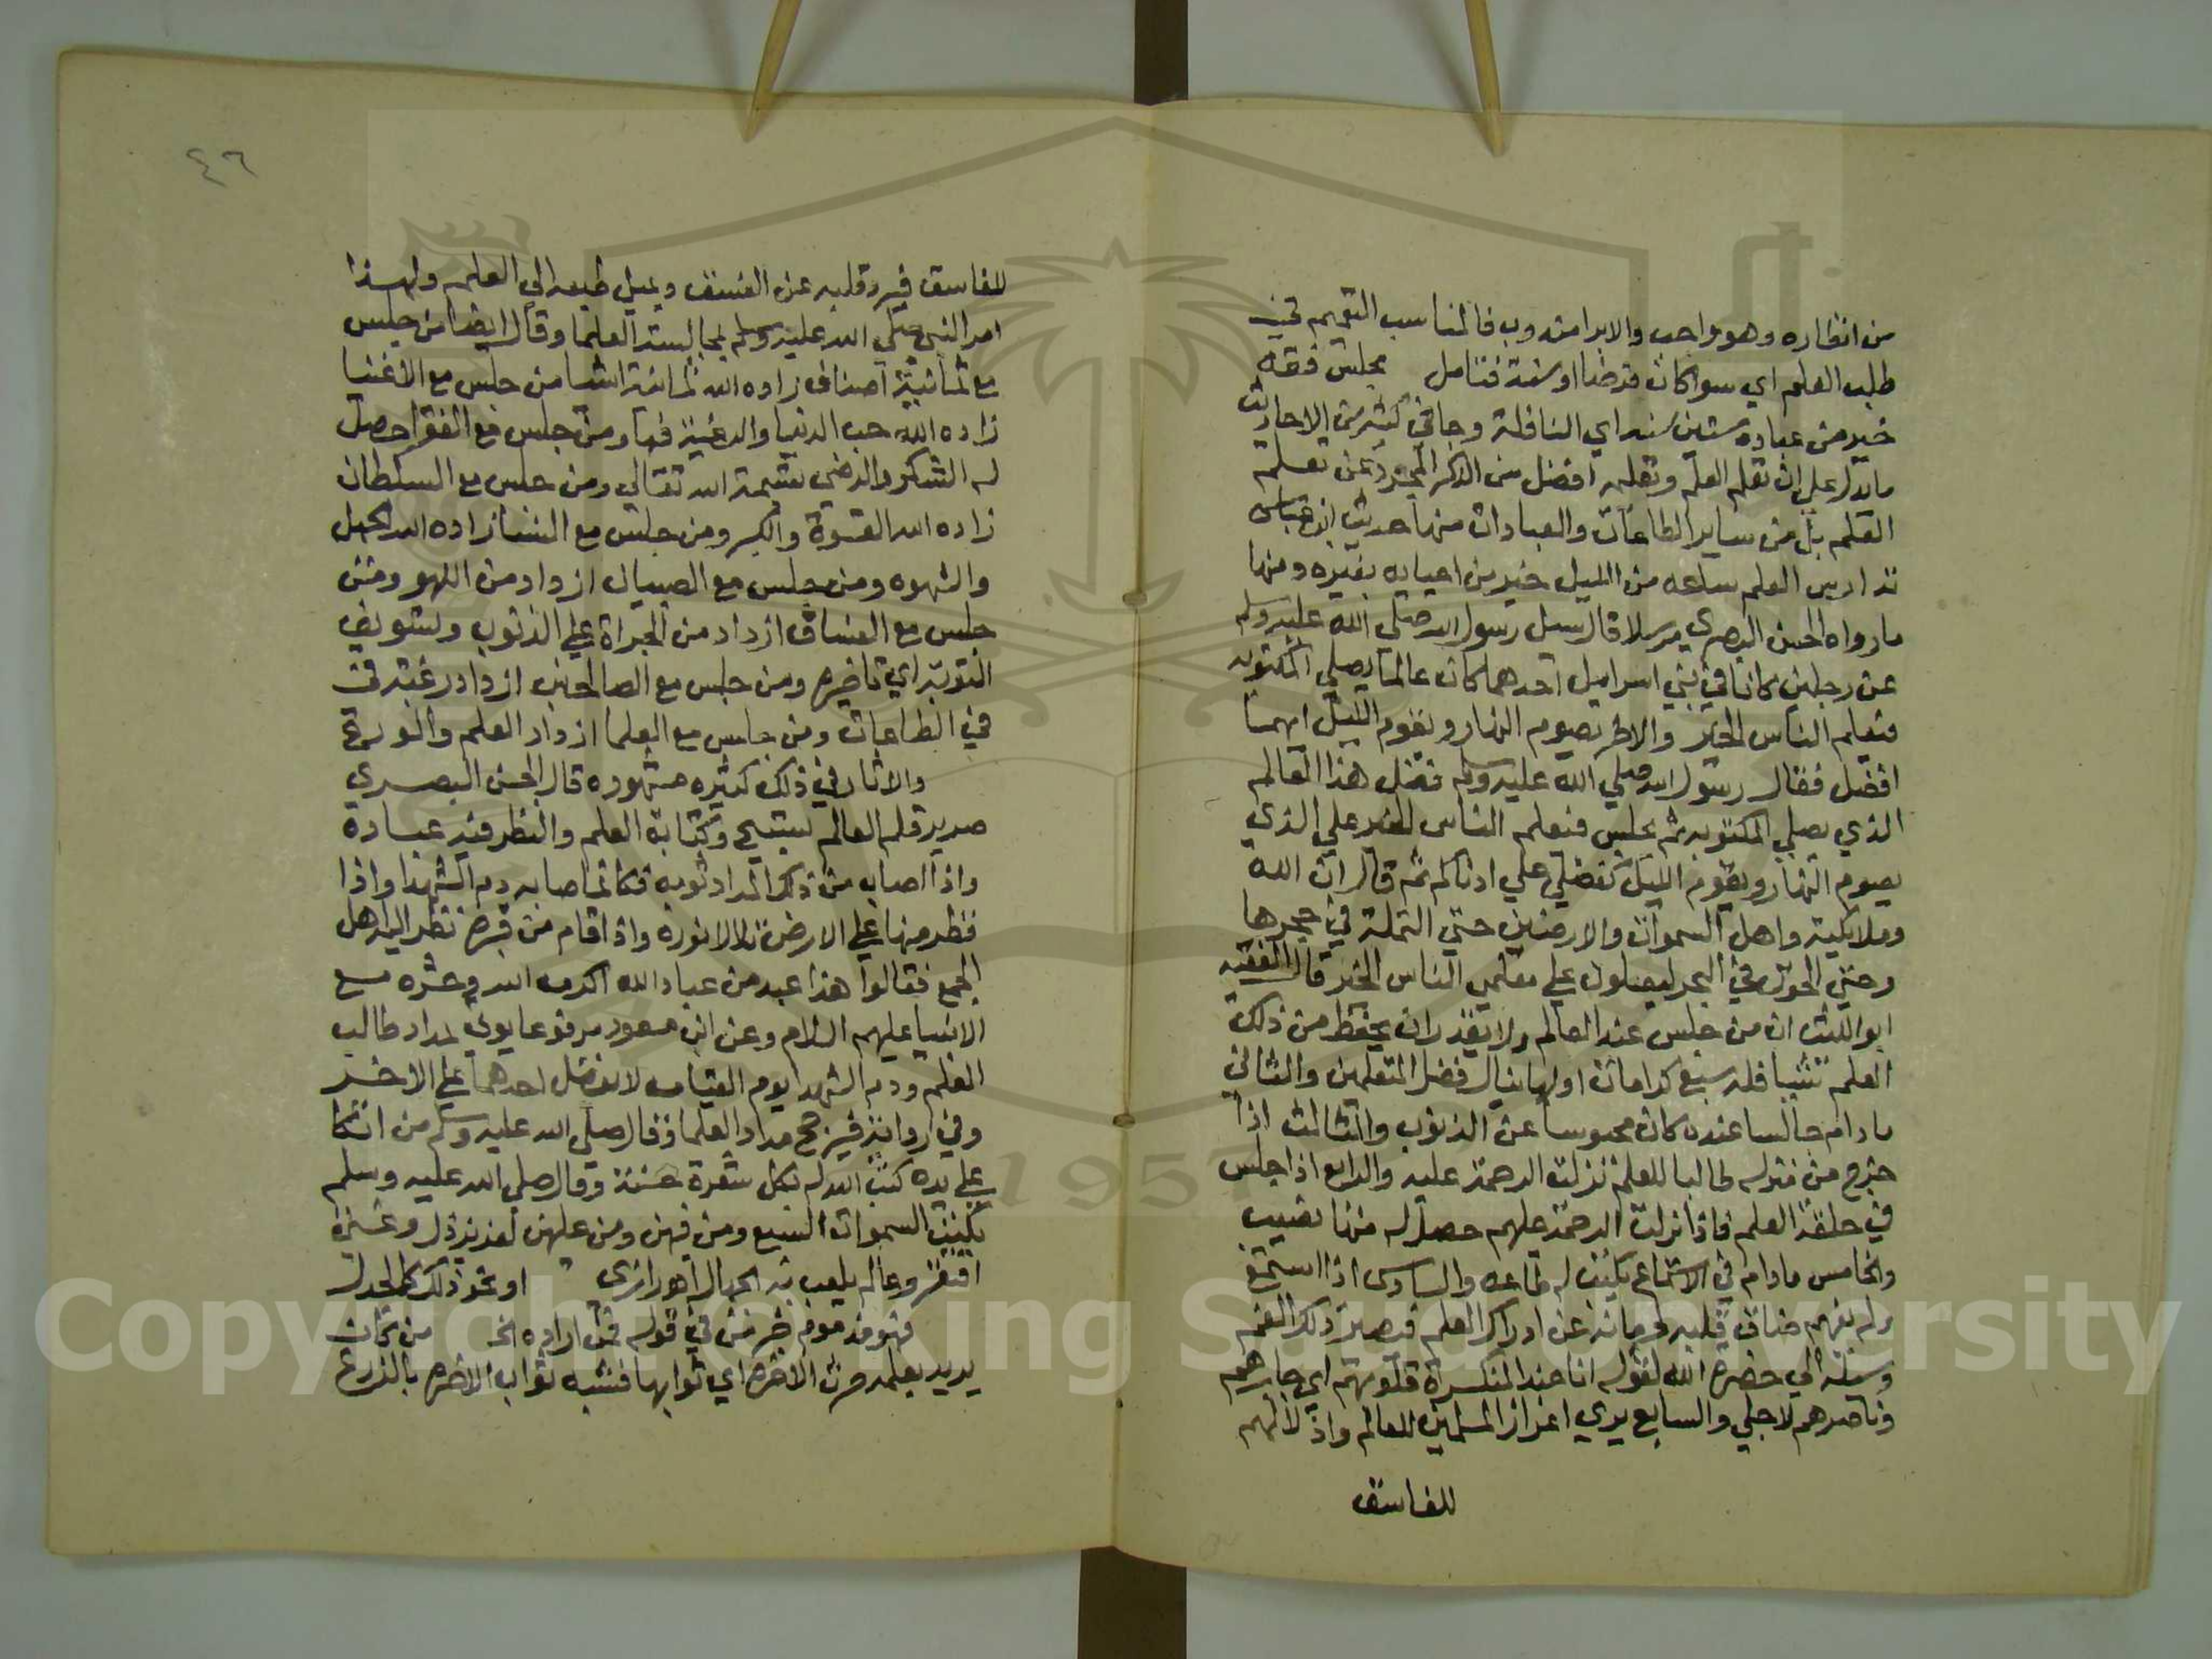 من انظاره وهو واجب والابرا مندوب فالمناسب التعميم
طلب العلم اي سوا كان فرضا او سنة فتامل مجلس فقه
خير من عبادة ستين سنه اي النافلة وجا في كثير من الاحاديث
ما يدل علي ان تعلم العلم وتعليمه افضل من الذكر المجرد عن تعلم
العلم بل من ساير الطاعات والعبادات منها حديث ابن عباس
تدارس العلم ساعه من الليل خير من احيايه بغيره ومنها
ما رواه الحسن البصري مرسلا قال سيل رسول الله صلي الله عليه وسلم
عن رجلين كانا في بني اسرايل احدهما كان عالما يصلي المكتوبه
فيعلم الناس الخير والاخر يصوم النهار ويقوم الليل ايهما
افضل فقال رسول الله صلي الله عليه وسلم فضل هذا العالم
الذي يصلي المكتوبه ثم يجلس فيعلم الناس الخير علي الذي
يصوم النهار ويقوم الليل كفضلي علي ادناكم ثم قال ان الله
وملايكته واهل السموات والارضين حتي النملة في جحرها
وحتي الحوت في البحر ليصلون علي معلمي الناس الخير قال الفقيه
ابو الليث ان من جلس عند العالم ولا يقدر ان يحفظ من ذلك
العلم شيا فله سبع كرامات اولها ينال فضل المتعلمين والثاني
ما دام جالسا عنده كان محبوسا عن الذنوب والثالث اذا
خرج من منزله طالبا للعلم نزلت الرحمة عليه والرابع اذا جلس
في حلقة العلم فاذا نزلت الرحمة عليهم حصل له منها نصيب
والخامس ما دام في الاستماع يكتب له طاعه والسادس اذا استمع
ولم يفهم ضاق قلبه لحرمانه عن ادراك العلم فيصير ذلك الغم
وسيلة الي حضرة الله لقوله انا عند المنكسرة قلوبهم اي جابرهم
وناصرهم لاجلي والسابع يري اعزاز المسلمين للعالم واذلالهم
للفاسق
٤٦
للفاسق فيرد قلبه عن الفسق ويميل طبعه الي العلم ولهذا
امر النبي صلي الله عليه وسلم بمجالسة العلما وقال ايضا من جلس
مع ثمانية اصناف زاده الله ثمانية اشيا من جلس مع الاغنيا
زاده الله حب الدنيا والرغبة فيها ومن جلس مع الفقرا حصل
له الشكر والرضى بقسمة الله تعالي ومن جلس مع السلطان
زاده الله القسوة والكبر ومن جلس مع النسا زاده الله الجهل
والشهوه ومن جلس مع الصبيان ازداد من اللهو ومن
جلس مع الفساق ازداد من الجراة علي الذنوب وتسويف
التوبة اي تاخيرها ومن جلس مع الصالحين ازداد رغبة في
في الطاعات ومن جلس مع العلما ازداد العلم والورع
والاثار في ذلك كثيره مشهوره قال الحسن البصري
صرير قلم العالم تسبيح وكتابة العلم والنظر فيه عبادة
واذا اصاب من ذلك المداد ثوبه فكانما اصابه دم الشهدا واذا
قطر منها علي الارض تلالا نوره واذا قام من قبره نظر اليه اهل
الجمع فقالوا هذا عبد من عباد الله اكرمه الله وحشره مع
الانبيا عليهم السلام وعن ابن مسعود مرفوعا يوتي بمداد طالب
العلم ودم الشهدا يوم القيامه لا يفضل احدهما علي الاخر
وفي رواية فيرجح مداد العلما وقال صلي الله عليه وسلم من اتكا
علي يده كتب الله له بكل شعرة حسنة وقال صلي الله عليه وسلم
بكت السموات السبع ومن فيهن ومن عليهن لعزيز ذل وغني
افتقر وعالم يلعب به الجهال اهو او نحو ذلك كالجدل
فهو مذموم في قوله من اراده الخ من كان
يريد بعلمه حرث الاخره اي ثوابها فشبه ثواب الاخره بالزرع